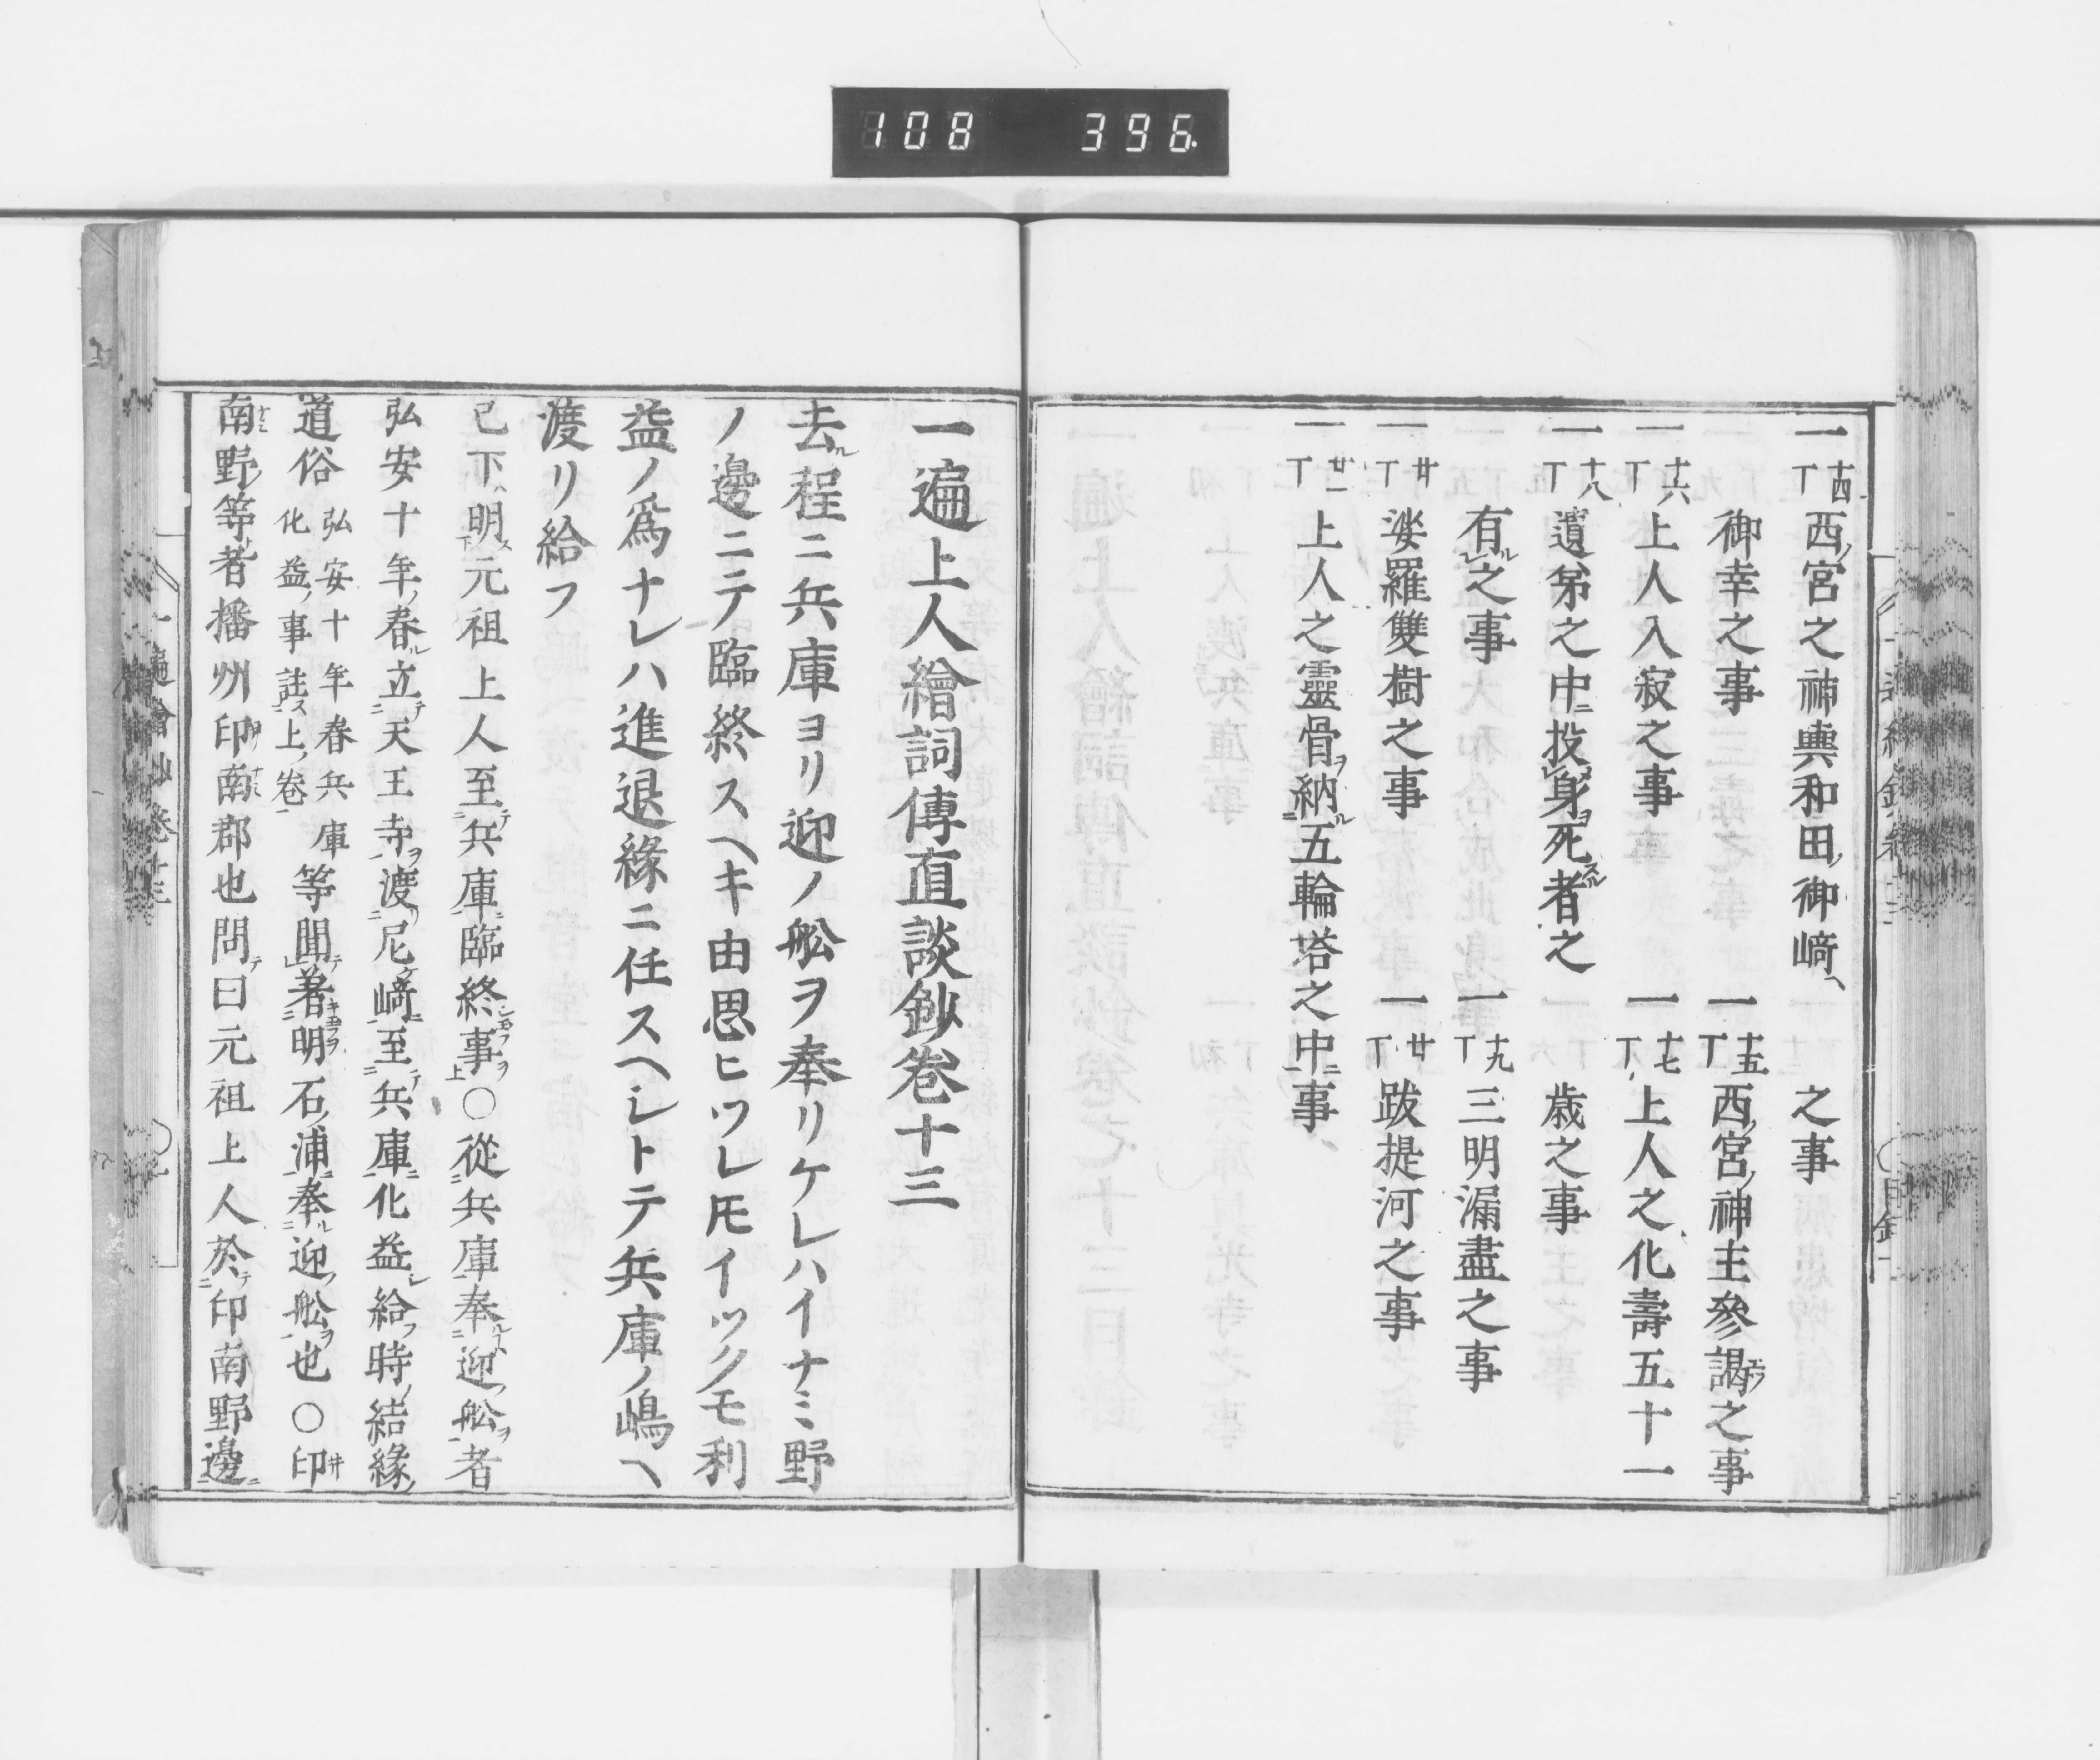 108 396
一 十四丁 西ノ宮之神輿和田ノ御﨑ヘ 之事
御幸之事 一 十五丁 西ノ宮ノ神主參謁之事
一 十六丁 上人入寂之事 一 十七丁 上人之化壽五十一
一 十八丁 遺弟之中ニ投身ヲ死スル者之 歳之事
有ル之事 一 十九丁 三明漏盡之事
一 廿丁 娑羅雙樹之事 一 廿丁 跋提河之事
一 廿一丁 上人之靈骨ヲ納ル五輪塔之中ニ事
一遍上人繪詞傳直談鈔卷十三
去ル程ニ兵庫ヨリ迎ノ舩ヲ奉リケレハイナミ野
ノ邊ニテ臨終スヘキ由思ヒツレ𪜈イツクモ利
益ノ爲ナレハ進退緣ニ任スヘシトテ兵庫ノ嶋ヘ
渡リ給フ
已下ハ明ス下元祖上人至テ兵庫ニ臨終シ玉フ事ヲ上○從兵庫奉ルト迎ノ舩ヲ者
弘安十年ノ春立テ天王寺ヲ渡リ尼﨑ニ至テ兵庫ニ化益シ給フ時ノ結緣ノ
道俗 弘安十年春兵庫化益ノ事註ス上ノ卷ニ 等聞テ著キ玉フヲ明石ノ浦ニ奉ル迎ノ舩ヲ也○印
南野等者播州印南郡也問テ曰元祖上人於テ印南野邊ニ